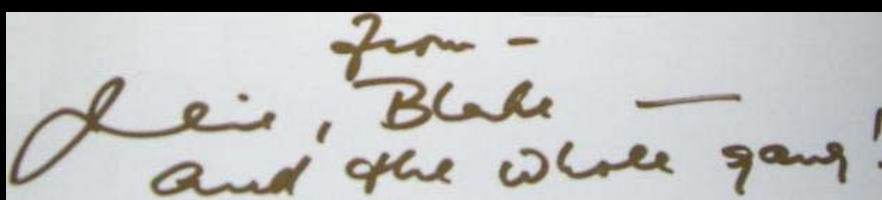 From -
Julie, Blake —
and the whole gang!